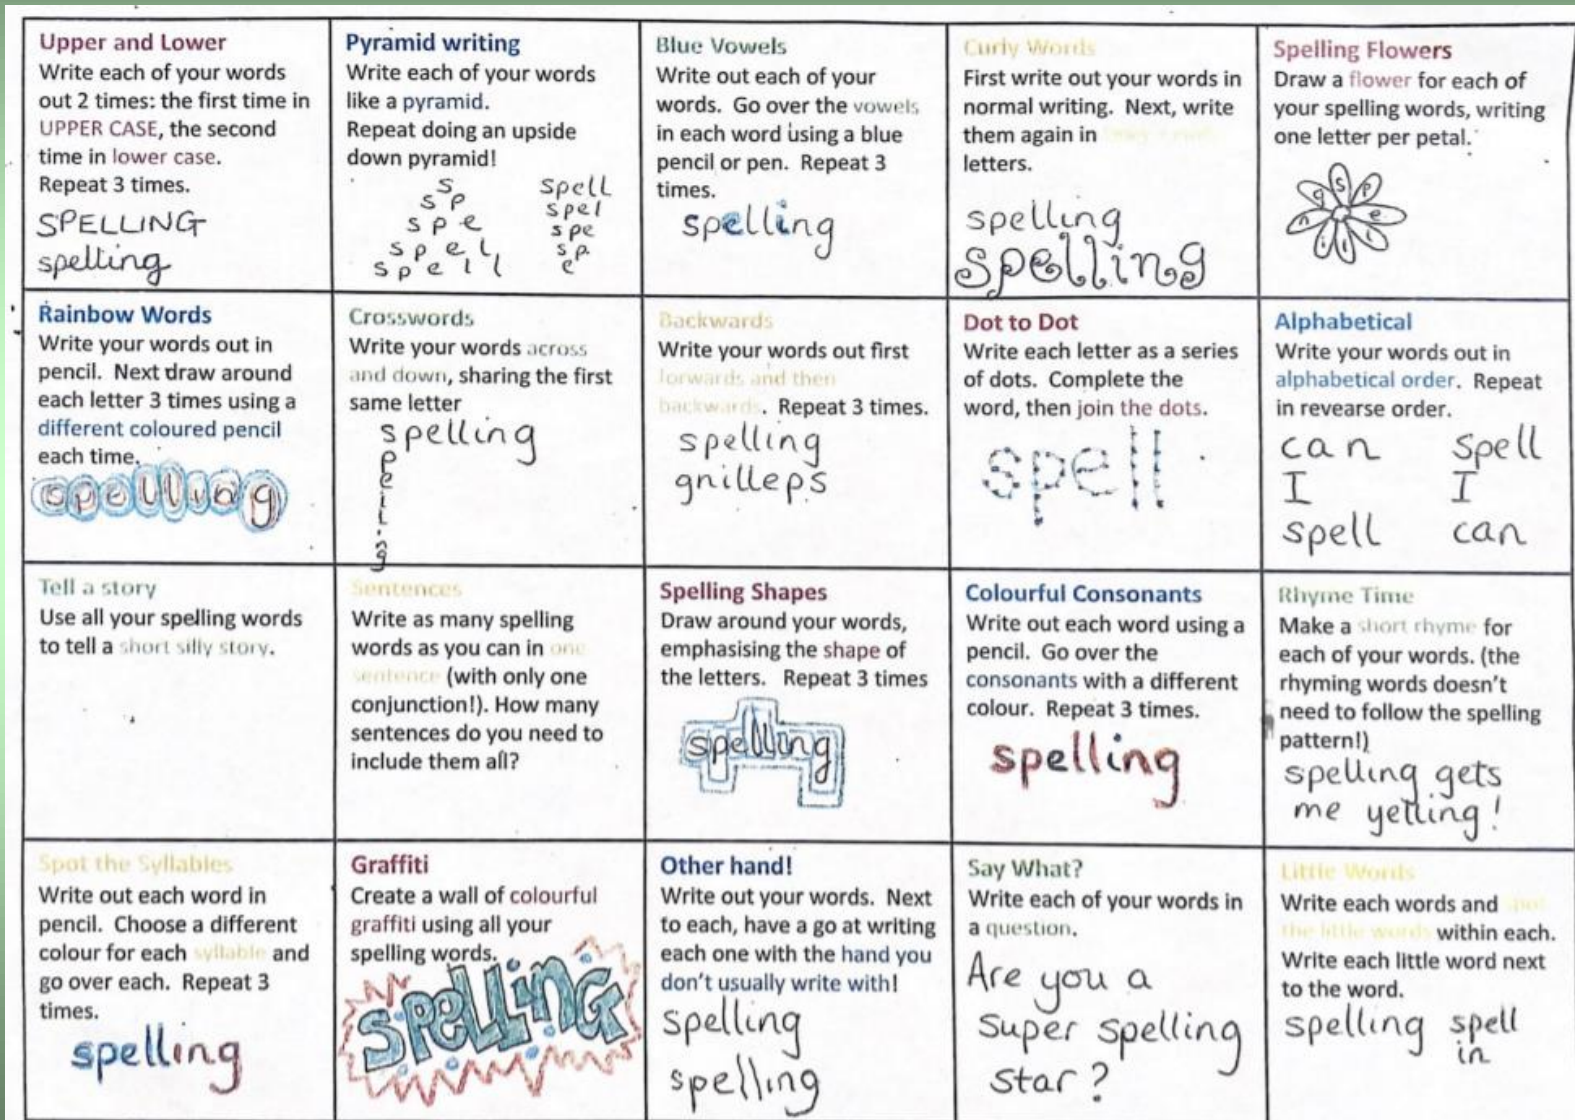 Upper and Lower
Write each of your words
out 2 times: the first time in
UPPER CASE, the second
time in lower case.
Repeat 3 times.
SPELLING
spelling
Pyramid writing
Write each of your words
like a pyramid.
Repeat doing an upside
down pyramid!
s spell
sp spel
spe spe
spel sp
spell
Blue Vowels
Write out each of your
words. Go over the vowels
in each word using a blue
pencil or pen. Repeat 3
times.
spelling
Curly Words
First write out your words in
normal writing. Next, write
them again in
letters.
spelling
spelling
Spelling Flowers
Draw a flower for each of
your spelling words, writing
one letter per petal.
spelling
Rainbow Words
Write your words out in
pencil. Next draw around
each letter 3 times using a
different coloured pencil
each time.
spelling
Crosswords
Write your words across
and down, sharing the first
same letter
spelling
p
e
l
Backwards
Write your words out first
forwards and then
backwards. Repeat 3 times.
spelling
gnilleps
Dot to Dot
Write each letter as a series
of dots. Complete the
word, then join the dots.
spell
Alphabetical
Write your words out in
alphabetical order. Repeat
in revearse order.
can spell
I I
spell can
Tell a story
Use all your spelling words
to tell a short silly story.
Sentences
Write as many spelling
words as you can in one
sentence (with only one
conjunction!). How many
sentences do you need to
include them all?
Spelling Shapes
Draw around your words,
emphasising the shape of
the letters. Repeat 3 times
spelling
Colourful Consonants
Write out each word using a
pencil. Go over the
consonants with a different
colour. Repeat 3 times.
spelling
Rhyme Time
Make a short rhyme for
each of your words. (the
rhyming words doesn't
need to follow the spelling
pattern!)
spelling gets
me yelling!
Spot the Syllables
Write out each word in
pencil. Choose a different
colour for each syllable and
go over each. Repeat 3
times.
spelling
Graffiti
Create a wall of colourful
graffiti using all your
spelling words.
SPELLING
Other hand!
Write out your words. Next
to each, have a go at writing
each one with the hand you
don't usually write with!
spelling
spelling
Say What?
Write each of your words in
a question.
Are you a
super spelling
star?
Little Words
Write each words and spot
the little words within each.
Write each little word next
to the word.
spelling spell
in